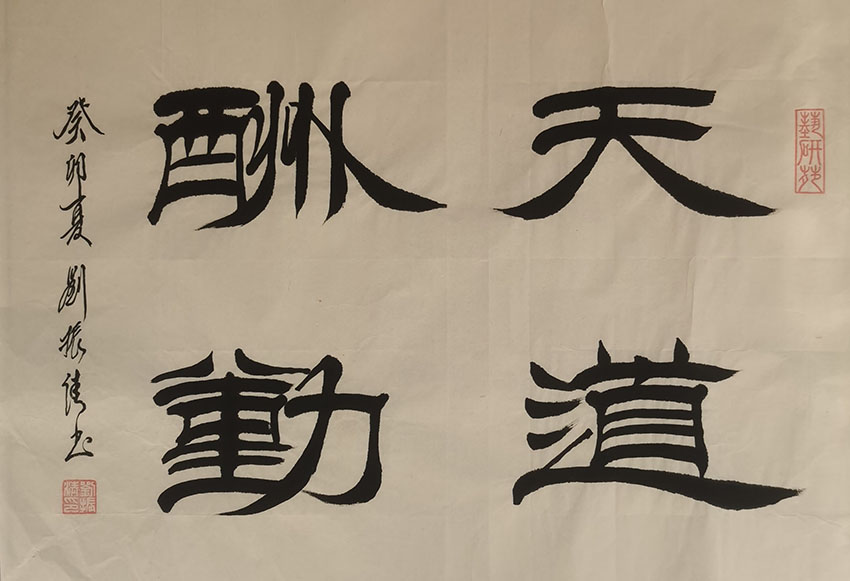 天道
酬勤
癸卯夏 劉振清书